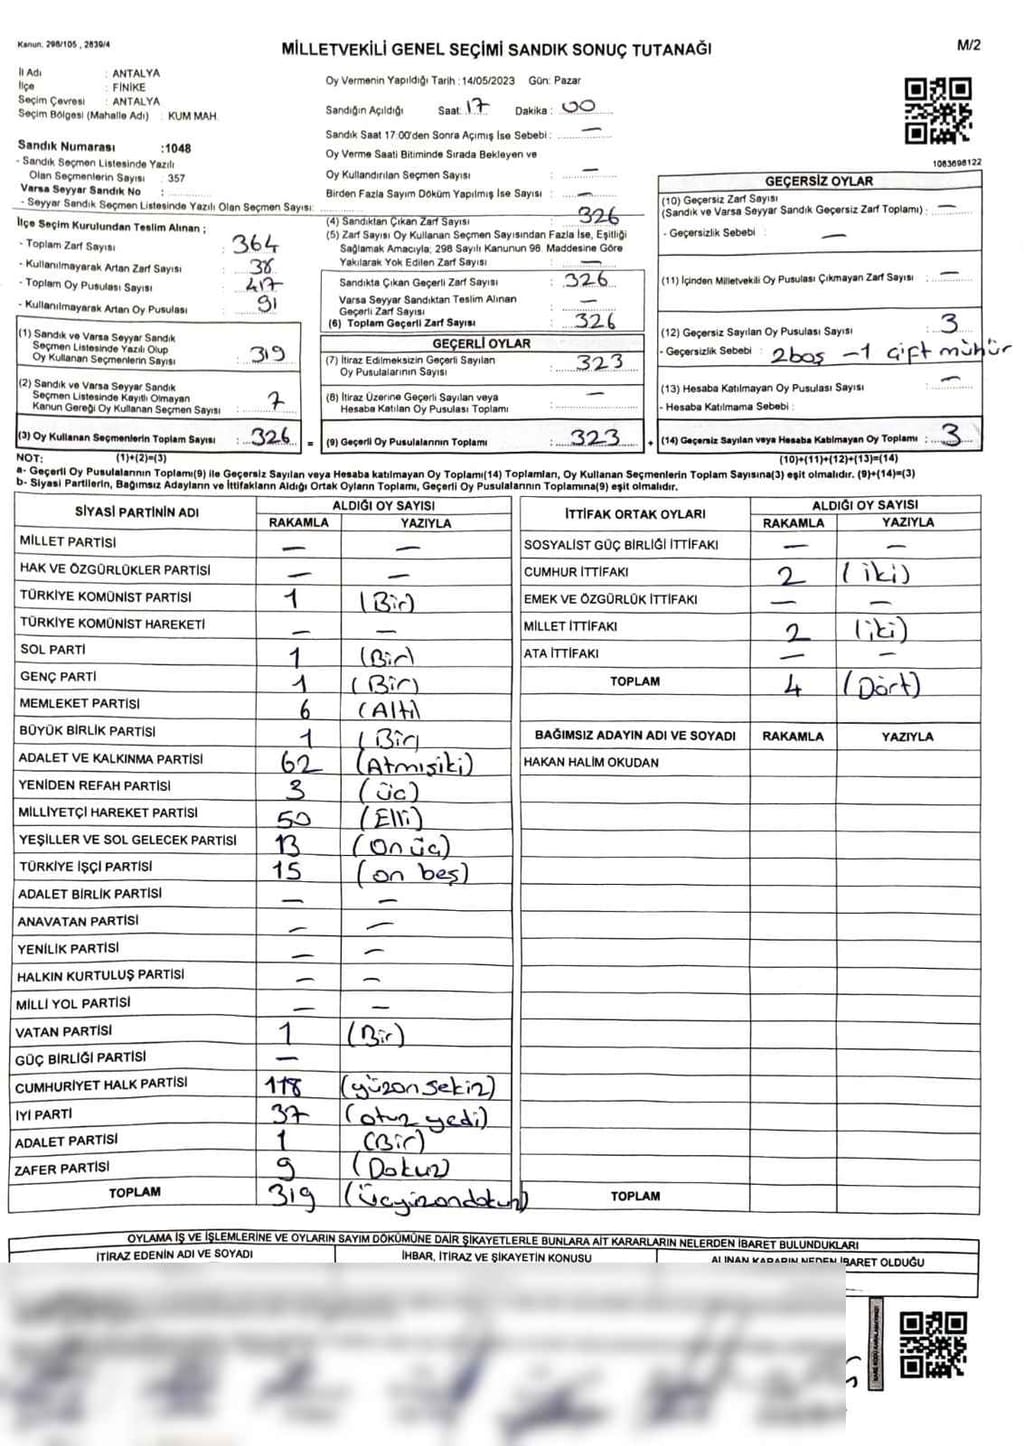 Kanun: 298/105 , 2839/4
MİLLETVEKİLİ GENEL SEÇİMİ SANDIK SONUÇ TUTANAĞI
M/2
İl Adı : ANTALYA
İlçe : FİNİKE
Seçim Çevresi : ANTALYA
Seçim Bölgesi (Mahalle Adı) : KUM MAH.
Sandık Numarası :1048
- Sandık Seçmen Listesinde Yazılı
Olan Seçmenlerin Sayısı : 357
Varsa Seyyar Sandık No :
- Seyyar Sandık Seçmen Listesinde Yazılı Olan Seçmen Sayısı:
İlçe Seçim Kurulundan Teslim Alınan ;
- Toplam Zarf Sayısı : 364
- Kullanılmayarak Artan Zarf Sayısı : 38
- Toplam Oy Pusulası Sayısı : 417
- Kullanılmayarak Artan Oy Pusulası : 91
(1) Sandık ve Varsa Seyyar Sandık
Seçmen Listesinde Yazılı Olup
Oy Kullanan Seçmenlerin Sayısı : 319
(2) Sandık ve Varsa Seyyar Sandık
Seçmen Listesinde Kayıtlı Olmayan
Kanun Gereği Oy Kullanan Seçmen Sayısı : 7
(3) Oy Kullanan Seçmenlerin Toplam Sayısı : 326 =
Oy Vermenin Yapıldığı Tarih :14/05/2023 Gün: Pazar
Sandığın Açıldığı Saat: 17 Dakika : 00
Sandık Saat 17:00'den Sonra Açımış İse Sebebi : —
Oy Verme Saati Bitiminde Sırada Bekleyen ve
Oy Kullandırılan Seçmen Sayısı : —
Birden Fazla Sayım Döküm Yapılmış İse Sayısı : —
(4) Sandıktan Çıkan Zarf Sayısı : 326
(5) Zarf Sayısı Oy Kullanan Seçmen Sayısından Fazla İse, Eşitliği
Sağlamak Amacıyla; 298 Sayılı Kanunun 98. Maddesine Göre
Yakılarak Yok Edilen Zarf Sayısı : —
Sandıkta Çıkan Geçerli Zarf Sayısı : 326
Varsa Seyyar Sandıktan Teslim Alınan
Geçerli Zarf Sayısı : —
(6) Toplam Geçerli Zarf Sayısı : 326
GEÇERLİ OYLAR
(7) İtiraz Edilmeksizin Geçerli Sayılan
Oy Pusulalarının Sayısı : 323
(8) İtiraz Üzerine Geçerli Sayılan veya
Hesaba Katılan Oy Pusulası Toplamı : —
(9) Geçerli Oy Pusulalarının Toplamı : 323 +
1083698122
GEÇERSİZ OYLAR
(10) Geçersiz Zarf Sayısı
(Sandık ve Varsa Seyyar Sandık Geçersiz Zarf Toplamı) : —
- Geçersizlik Sebebi : —
(11) İçinden Milletvekili Oy Pusulası Çıkmayan Zarf Sayısı : —
(12) Geçersiz Sayılan Oy Pusulası Sayısı : 3
- Geçersizlik Sebebi : 2boş -1 çift mühür
(13) Hesaba Katılmayan Oy Pusulası Sayısı : —
- Hesaba Katılmama Sebebi :
(14) Geçersiz Sayılan veya Hesaba Katılmayan Oy Toplamı : 3
NOT: (1)+(2)=(3) (10)+(11)+(12)+(13)=(14)
a- Geçerli Oy Pusulalarının Toplamı(9) ile Geçersiz Sayılan veya Hesaba katılmayan Oy Toplamı(14) Toplamları, Oy Kullanan Seçmenlerin Toplam Sayısına(3) eşit olmalıdır. (9)+(14)=(3)
b- Siyasi Partilerin, Bağımsız Adayların ve İttifakların Aldığı Ortak Oyların Toplamı, Geçerli Oy Pusulalarının Toplamına(9) eşit olmalıdır.
SİYASİ PARTİNİN ADI ALDIĞI OY SAYISI
RAKAMLA YAZIYLA
MİLLET PARTİSİ — —
HAK VE ÖZGÜRLÜKLER PARTİSİ — —
TÜRKİYE KOMÜNİST PARTİSİ 1 (Bir)
TÜRKİYE KOMÜNİST HAREKETİ — —
SOL PARTİ 1 (Bir)
GENÇ PARTİ 1 (Bir)
MEMLEKET PARTİSİ 6 (Altı)
BÜYÜK BİRLİK PARTİSİ 1 (Bir)
ADALET VE KALKINMA PARTİSİ 62 (Atmışiki)
YENİDEN REFAH PARTİSİ 3 (üç)
MİLLİYETÇİ HAREKET PARTİSİ 50 (Elli)
YEŞİLLER VE SOL GELECEK PARTİSİ 13 (On üç)
TÜRKİYE İŞÇİ PARTİSİ 15 (on beş)
ADALET BİRLİK PARTİSİ — —
ANAVATAN PARTİSİ — —
YENİLİK PARTİSİ — —
HALKIN KURTULUŞ PARTİSİ — —
MİLLİ YOL PARTİSİ — —
VATAN PARTİSİ 1 (Bir)
GÜÇ BİRLİĞİ PARTİSİ —
CUMHURİYET HALK PARTİSİ 118 (yüzonsekiz)
İYİ PARTİ 37 (otuz yedi)
ADALET PARTİSİ 1 (Bir)
ZAFER PARTİSİ 9 (Dokuz)
TOPLAM 319 (Üçyüzondokuz)
İTTİFAK ORTAK OYLARI ALDIĞI OY SAYISI
RAKAMLA YAZIYLA
SOSYALİST GÜÇ BİRLİĞİ İTTİFAKI — —
CUMHUR İTTİFAKI 2 (iki)
EMEK VE ÖZGÜRLÜK İTTİFAKI — —
MİLLET İTTİFAKI 2 (iki)
ATA İTTİFAKI — —
TOPLAM 4 (Dört)
BAĞIMSIZ ADAYIN ADI VE SOYADI RAKAMLA YAZIYLA
HAKAN HALİM OKUDAN
TOPLAM
OYLAMA İŞ VE İŞLEMLERİNE VE OYLARIN SAYIM DÖKÜMÜNE DAİR ŞİKAYETLERLE BUNLARA AİT KARARLARIN NELERDEN İBARET BULUNDUKLARI
İTİRAZ EDENİN ADI VE SOYADI İHBAR, İTİRAZ VE ŞİKAYETİN KONUSU ALINAN KARARIN NEDEN İBARET OLDUĞU